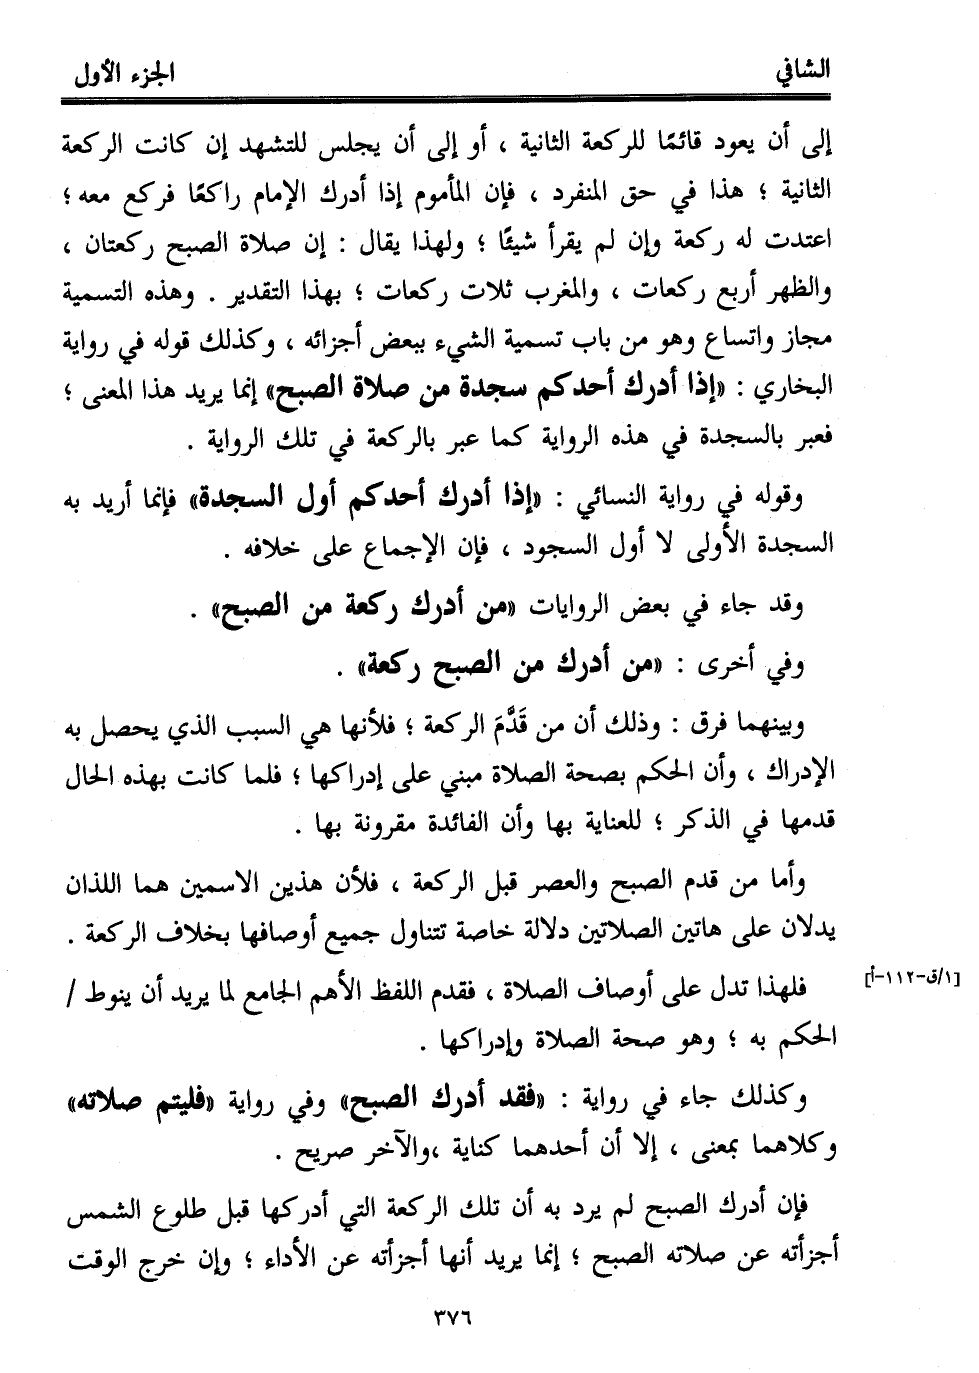 الشافي
الجزء الأول
إلى أن يعود قائمًا للركعة الثانية ، أو إلى أن يجلس للتشهد إن كانت الركعة
الثانية ؛ هذا في حق المنفرد ، فإن المأموم إذا أدرك الإمام راكعًا فركع معه ؛
اعتدت له ركعة وإن لم يقرأ شيئًا ؛ ولهذا يقال : إن صلاة الصبح ركعتان ،
والظهر أربع ركعات ، والمغرب ثلاث ركعات ؛ بهذا التقدير . وهذه التسمية
مجاز واتساع وهو من باب تسمية الشيء ببعض أجزائه ، وكذلك قوله في رواية
البخاري : «إذا أدرك أحدكم سجدة من صلاة الصبح» إنما يريد هذا المعنى ؛
فعبر بالسجدة في هذه الرواية كما عبر بالركعة في تلك الرواية .
وقوله في رواية النسائي : «إذا أدرك أحدكم أول السجدة» فإنما أريد به
السجدة الأولى لا أول السجود ، فإن الإجماع على خلافه .
وقد جاء في بعض الروايات «من أدرك ركعة من الصبح» .
وفي أخرى : «من أدرك من الصبح ركعة» .
وبينهما فرق : وذلك أن من قَدَّمَ الركعة ؛ فلأنها هي السبب الذي يحصل به
الإدراك ، وأن الحكم بصحة الصلاة مبني على إدراكها ؛ فلما كانت بهذه الحال
قدمها في الذكر ؛ للعناية بها وأن الفائدة مقرونة بها .
وأما من قدم الصبح والعصر قبل الركعة ، فلأن هذين الاسمين هما اللذان
يدلان على هاتين الصلاتين دلالة خاصة تتناول جميع أوصافها بخلاف الركعة .
فلهذا تدل على أوصاف الصلاة ، فقدم اللفظ الأهم الجامع لما يريد أن ينوط /
[١/ق-١١٢-أ]
الحكم به ؛ وهو صحة الصلاة وإدراكها .
وكذلك جاء في رواية : «فقد أدرك الصبح» وفي رواية «فليتم صلاته»
وكلاهما بمعنى ، إلا أن أحدهما كناية ،والآخر صريح .
فإن أدرك الصبح لم يرد به أن تلك الركعة التي أدركها قبل طلوع الشمس
أجزأته عن صلاته الصبح ؛ إنما يريد أنها أجزأته عن الأداء ؛ وإن خرج الوقت
٣٧٦